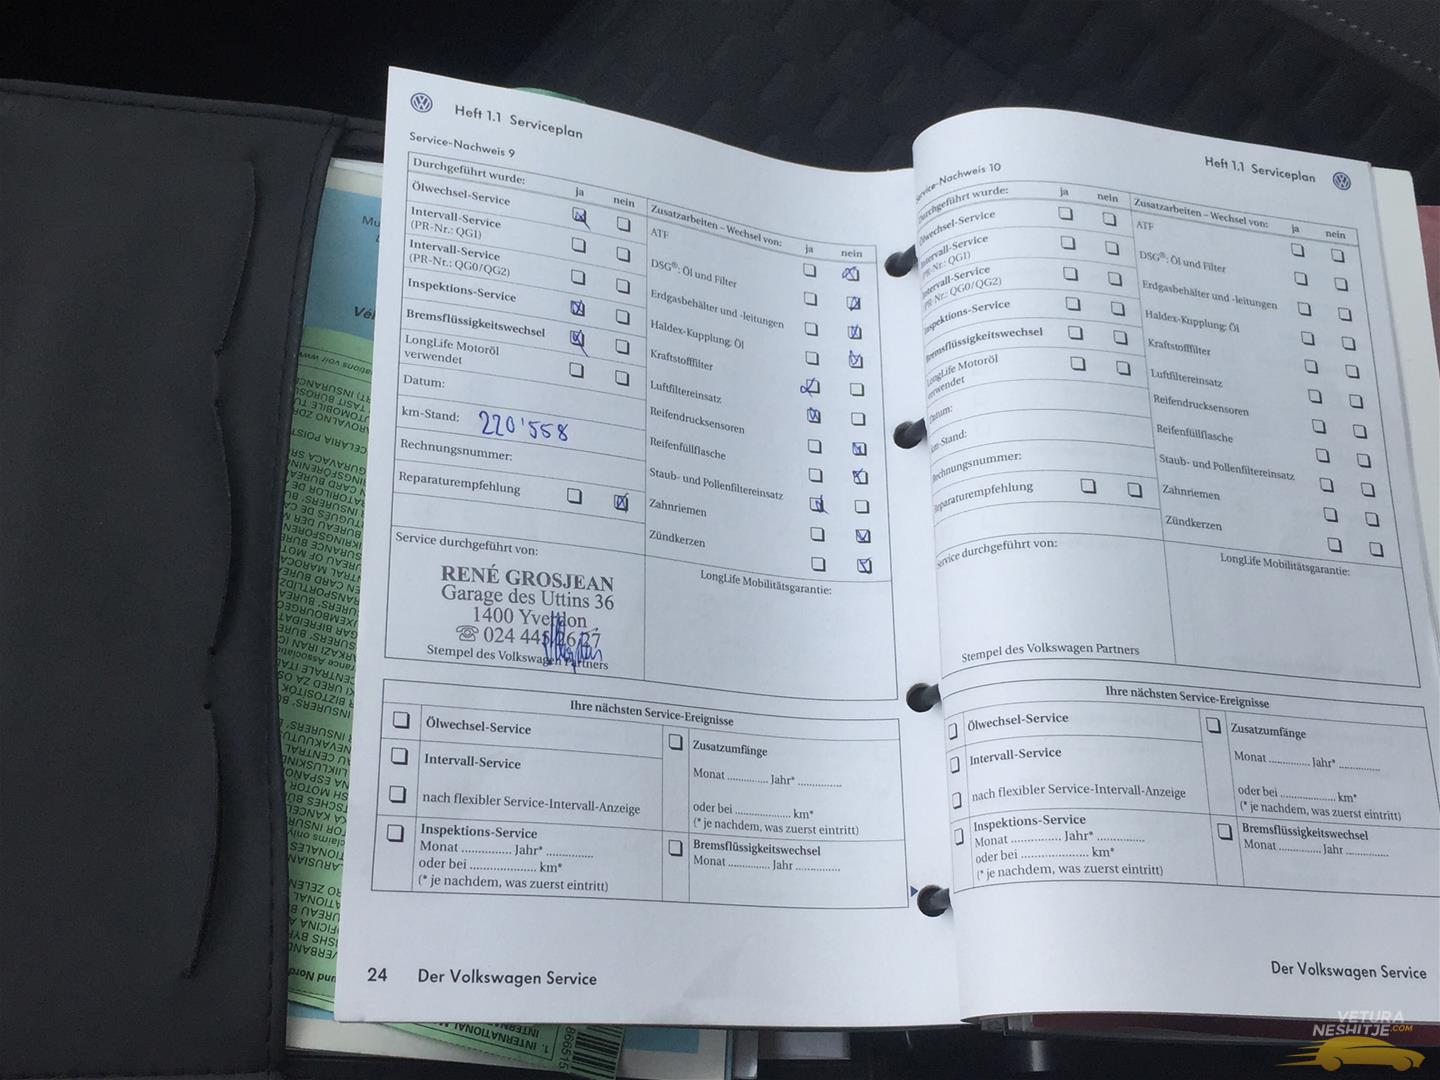 Heft 1.1 Serviceplan
Service-Nachweis 9
Durchgeführt wurde:
ja
nein
Ölwechsel-Service
Intervall-Service
(PR-Nr.: QG1)
Intervall-Service
(PR-Nr.: QG0/QG2)
Inspektions-Service
Bremsflüssigkeitswechsel
LongLife Motoröl
verwendet
Datum:
km-Stand: 220'558
Rechnungsnummer:
Reparaturempfehlung
Service durchgeführt von:
RENÉ GROSJEAN
Garage des Uttins 36
1400 Yverdon
024 445 26 27
Stempel des Volkswagen Partners
Zusatzarbeiten – Wechsel von:
ja
nein
ATF
DSG®: Öl und Filter
Erdgasbehälter und -leitungen
Haldex-Kupplung: Öl
Kraftstofffilter
Luftfiltereinsatz
Reifendrucksensoren
Reifenfüllflasche
Staub- und Pollenfiltereinsatz
Zahnriemen
Zündkerzen
LongLife Mobilitätsgarantie:
Ihre nächsten Service-Ereignisse
Ölwechsel-Service
Intervall-Service
nach flexibler Service-Intervall-Anzeige
Inspektions-Service
Monat .............. Jahr* .............
oder bei .................... km*
(* je nachdem, was zuerst eintritt)
Zusatzumfänge
Monat ............ Jahr* .............
oder bei ................ km*
(* je nachdem, was zuerst eintritt)
Bremsflüssigkeitswechsel
Monat ............ Jahr .............
24 Der Volkswagen Service
Heft 1.1 Serviceplan
Service-Nachweis 10
Durchgeführt wurde:
ja
nein
Ölwechsel-Service
Intervall-Service
(PR-Nr.: QG1)
Intervall-Service
(PR-Nr.: QG0/QG2)
Inspektions-Service
Bremsflüssigkeitswechsel
LongLife Motoröl
verwendet
Datum:
km-Stand:
Rechnungsnummer:
Reparaturempfehlung
Service durchgeführt von:
Stempel des Volkswagen Partners
Zusatzarbeiten – Wechsel von:
ja
nein
ATF
DSG®: Öl und Filter
Erdgasbehälter und -leitungen
Haldex-Kupplung: Öl
Kraftstofffilter
Luftfiltereinsatz
Reifendrucksensoren
Reifenfüllflasche
Staub- und Pollenfiltereinsatz
Zahnriemen
Zündkerzen
LongLife Mobilitätsgarantie:
Ihre nächsten Service-Ereignisse
Ölwechsel-Service
Intervall-Service
nach flexibler Service-Intervall-Anzeige
Inspektions-Service
Monat .............. Jahr* .............
oder bei .................... km*
(* je nachdem, was zuerst eintritt)
Zusatzumfänge
Monat ............ Jahr* .............
oder bei ................ km*
(* je nachdem, was zuerst eintritt)
Bremsflüssigkeitswechsel
Monat ............ Jahr .............
Der Volkswagen Service
VETURA
NESHITJE.COM